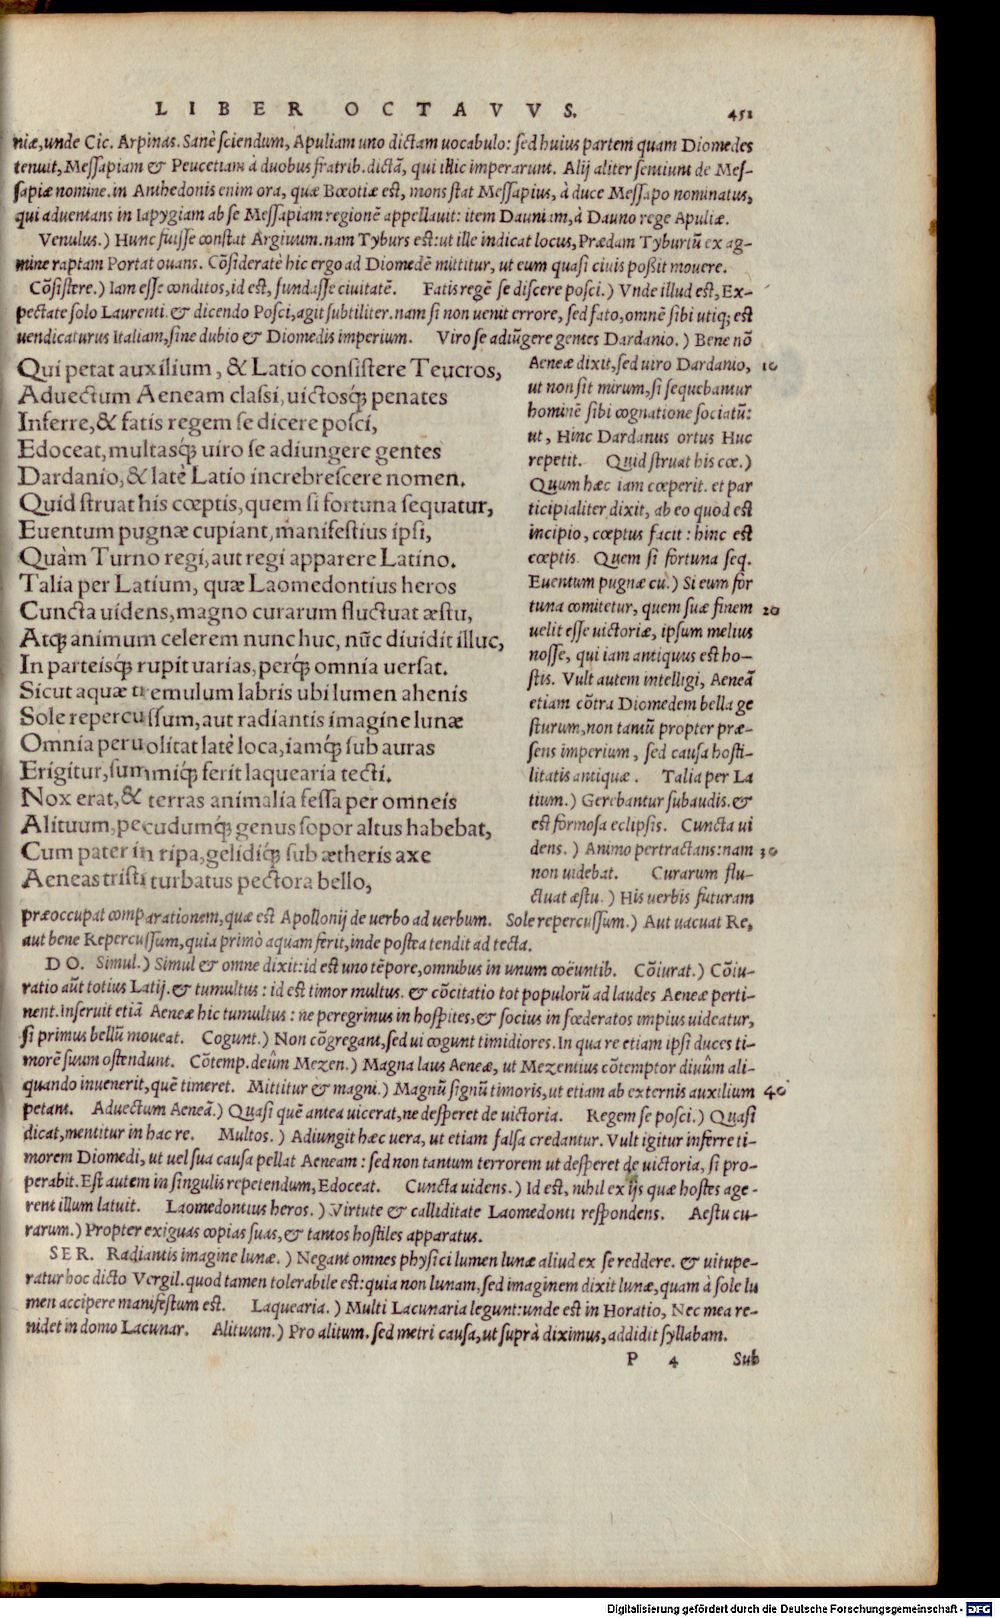 LIBER OCTAVVS. 451
niæ,unde Cic. Arpinas. Sanè sciendum, Apuliam uno dictam uocabulo: sed huius partem quam Diomedes
tenuit, Messapiam & Peucetiam à duobus fratrib. dictā, qui illic imperarunt. Alij aliter sentiunt de Mes-
sapiæ nomine. in Anthedonis enim ora, quæ Bœotiæ est, mons stat Messapius, à duce Messapo nominatus,
qui aduentans in Iapygiam ab se Messapiam regionē appellauit: item Dauniam, à Dauno rege Apuliæ.
Venulus.) Hunc fuisse constat Argiuum. nam Tyburs est: ut ille indicat locus, Prædam Tyburtū ex ag-
mine raptam Portat ouans. Cōsideratè hic ergo ad Diomedē mittitur, ut eum quasi ciuis poßit mouere.
Cōsistere.) Iam esse conditos, id est, fundasse ciuitatē. Fatis regē se discere posci.) Vnde illud est, Ex-
pectate solo Laurenti. & dicendo Posci, agit subtiliter. nam si non uenit errore, sed fato, omnē sibi utiq; est
uendicaturus Italiam, sine dubio & Diomedis imperium. Viro se adiūgere gentes Dardanio.) Bene nō
Qui petat auxilium, & Latio consistere Teucros,
Aduectum Aeneam classi, uictosq; penates
Inferre, & fatis regem se dicere posci,
Edoceat, multasq; uiro se adiungere gentes
Dardanio, & latè Latio increbrescere nomen.
Quid struat his cœptis, quem si fortuna sequatur,
Euentum pugnæ cupiant, manifestius ipsi,
Quàm Turno regi, aut regi apparere Latino.
Talia per Latium, quæ Laomedontius heros
Cuncta uidens, magno curarum fluctuat æstu,
Atq; animum celerem nunc huc, nūc diuidit illuc,
In parteisq; rupit uarias, perq; omnia uersat.
Sicut aquæ tremulum labris ubi lumen ahenis
Sole repercussum, aut radiantis imagine lunæ
Omnia peruolitat latè loca, iamq; sub auras
Erigitur, summiq; ferit laquearia tecti.
Nox erat, & terras animalia fessa per omneis
Alituum, pecudumq; genus sopor altus habebat,
Cum pater in ripa, gelidiq; sub ætheris axe
Aeneas tristi turbatus pectora bello,
Aeneæ dixit, sed uiro Dardanio, 10
ut non sit mirum, si sequebantur
hominē sibi cognatione sociatū:
ut, Hinc Dardanus ortus Huc
repetit. Quid struat his cœ.)
Quum hæc iam cœperit. et par
ticipialiter dixit, ab eo quod est
incipio, cœptus facit: hinc est
cœptis. Quem si fortuna seq.
Euentum pugnæ cu.) Si eum for
tuna comitetur, quem suæ finem 20
uelit esse uictoriæ, ipsum melius
nosse, qui iam antiquus est ho-
stis. Vult autem intelligi, Aeneā
etiam cōtra Diomedem bella ge
sturum, non tantū propter præ-
sens imperium, sed causa hosti-
litatis antiquæ. Talia per La
tium.) Gerebantur subaudis. &
est formosa eclipsis. Cuncta ui
dens.) Animo pertractans: nam 30
non uidebat. Curarum flu-
ctuat æstu.) His uerbis futuram
præoccupat comparationem, quæ est Apollonij de uerbo ad uerbum. Sole repercussum.) Aut uacuat Re,
aut bene Repercussum, quia primò aquam ferit, inde postea tendit ad tecta.
DO. Simul.) Simul & omne dixit: id est uno tēpore, omnibus in unum coëuntib. Cōiurat.) Cōiu-
ratio aūt totius Latij. & tumultus: id est timor multus. & cōcitatio tot populorū ad laudes Aeneæ perti-
nent. Inseruit etiā Aeneæ hic tumultus: ne peregrinus in hospites, & socius in fœderatos impius uideatur,
si primus bellū moueat. Cogunt.) Non cōgregant, sed ui cogunt timidiores. In qua re etiam ipsi duces ti-
morē suum ostendunt. Cōtemp. deûm Mezen.) Magna laus Aeneæ, ut Mezentius cōtemptor diuûm ali-
quando inuenerit, quē timeret. Mittitur & magni.) Magnū signū timoris, ut etiam ab externis auxilium 40
petant. Aduectum Aeneā.) Quasi quē antea uicerat, ne desperet de uictoria. Regem se posci.) Quasi
dicat, mentitur in hac re. Multos.) Adiungit hæc uera, ut etiam falsa credantur. Vult igitur inferre ti-
morem Diomedi, ut uel sua causa pellat Aeneam: sed non tantum terrorem ut desperet de uictoria, si pro-
perabit. Est autem in singulis repetendum, Edoceat. Cuncta uidens.) Id est, nihil ex ijs quæ hostes age-
rent illum latuit. Laomedontius heros.) Virtute & calliditate Laomedonti respondens. Aestu cu-
rarum.) Propter exiguas copias suas, & tantos hostiles apparatus.
SER. Radiantis imagine lunæ.) Negant omnes physici lumen lunæ aliud ex se reddere. & uitupe-
ratur hoc dicto Vergil. quod tamen tolerabile est: quia non lunam, sed imaginem dixit lunæ, quam à sole lu
men accipere manifestum est. Laquearia.) Multi Lacunaria legunt: unde est in Horatio, Nec mea re-
nidet in domo Lacunar. Alituum.) Pro alitum. sed metri causa, ut suprà diximus, addidit syllabam.
P 4 Sub
Digitalisierung gefördert durch die Deutsche Forschungsgemeinschaft - DFG